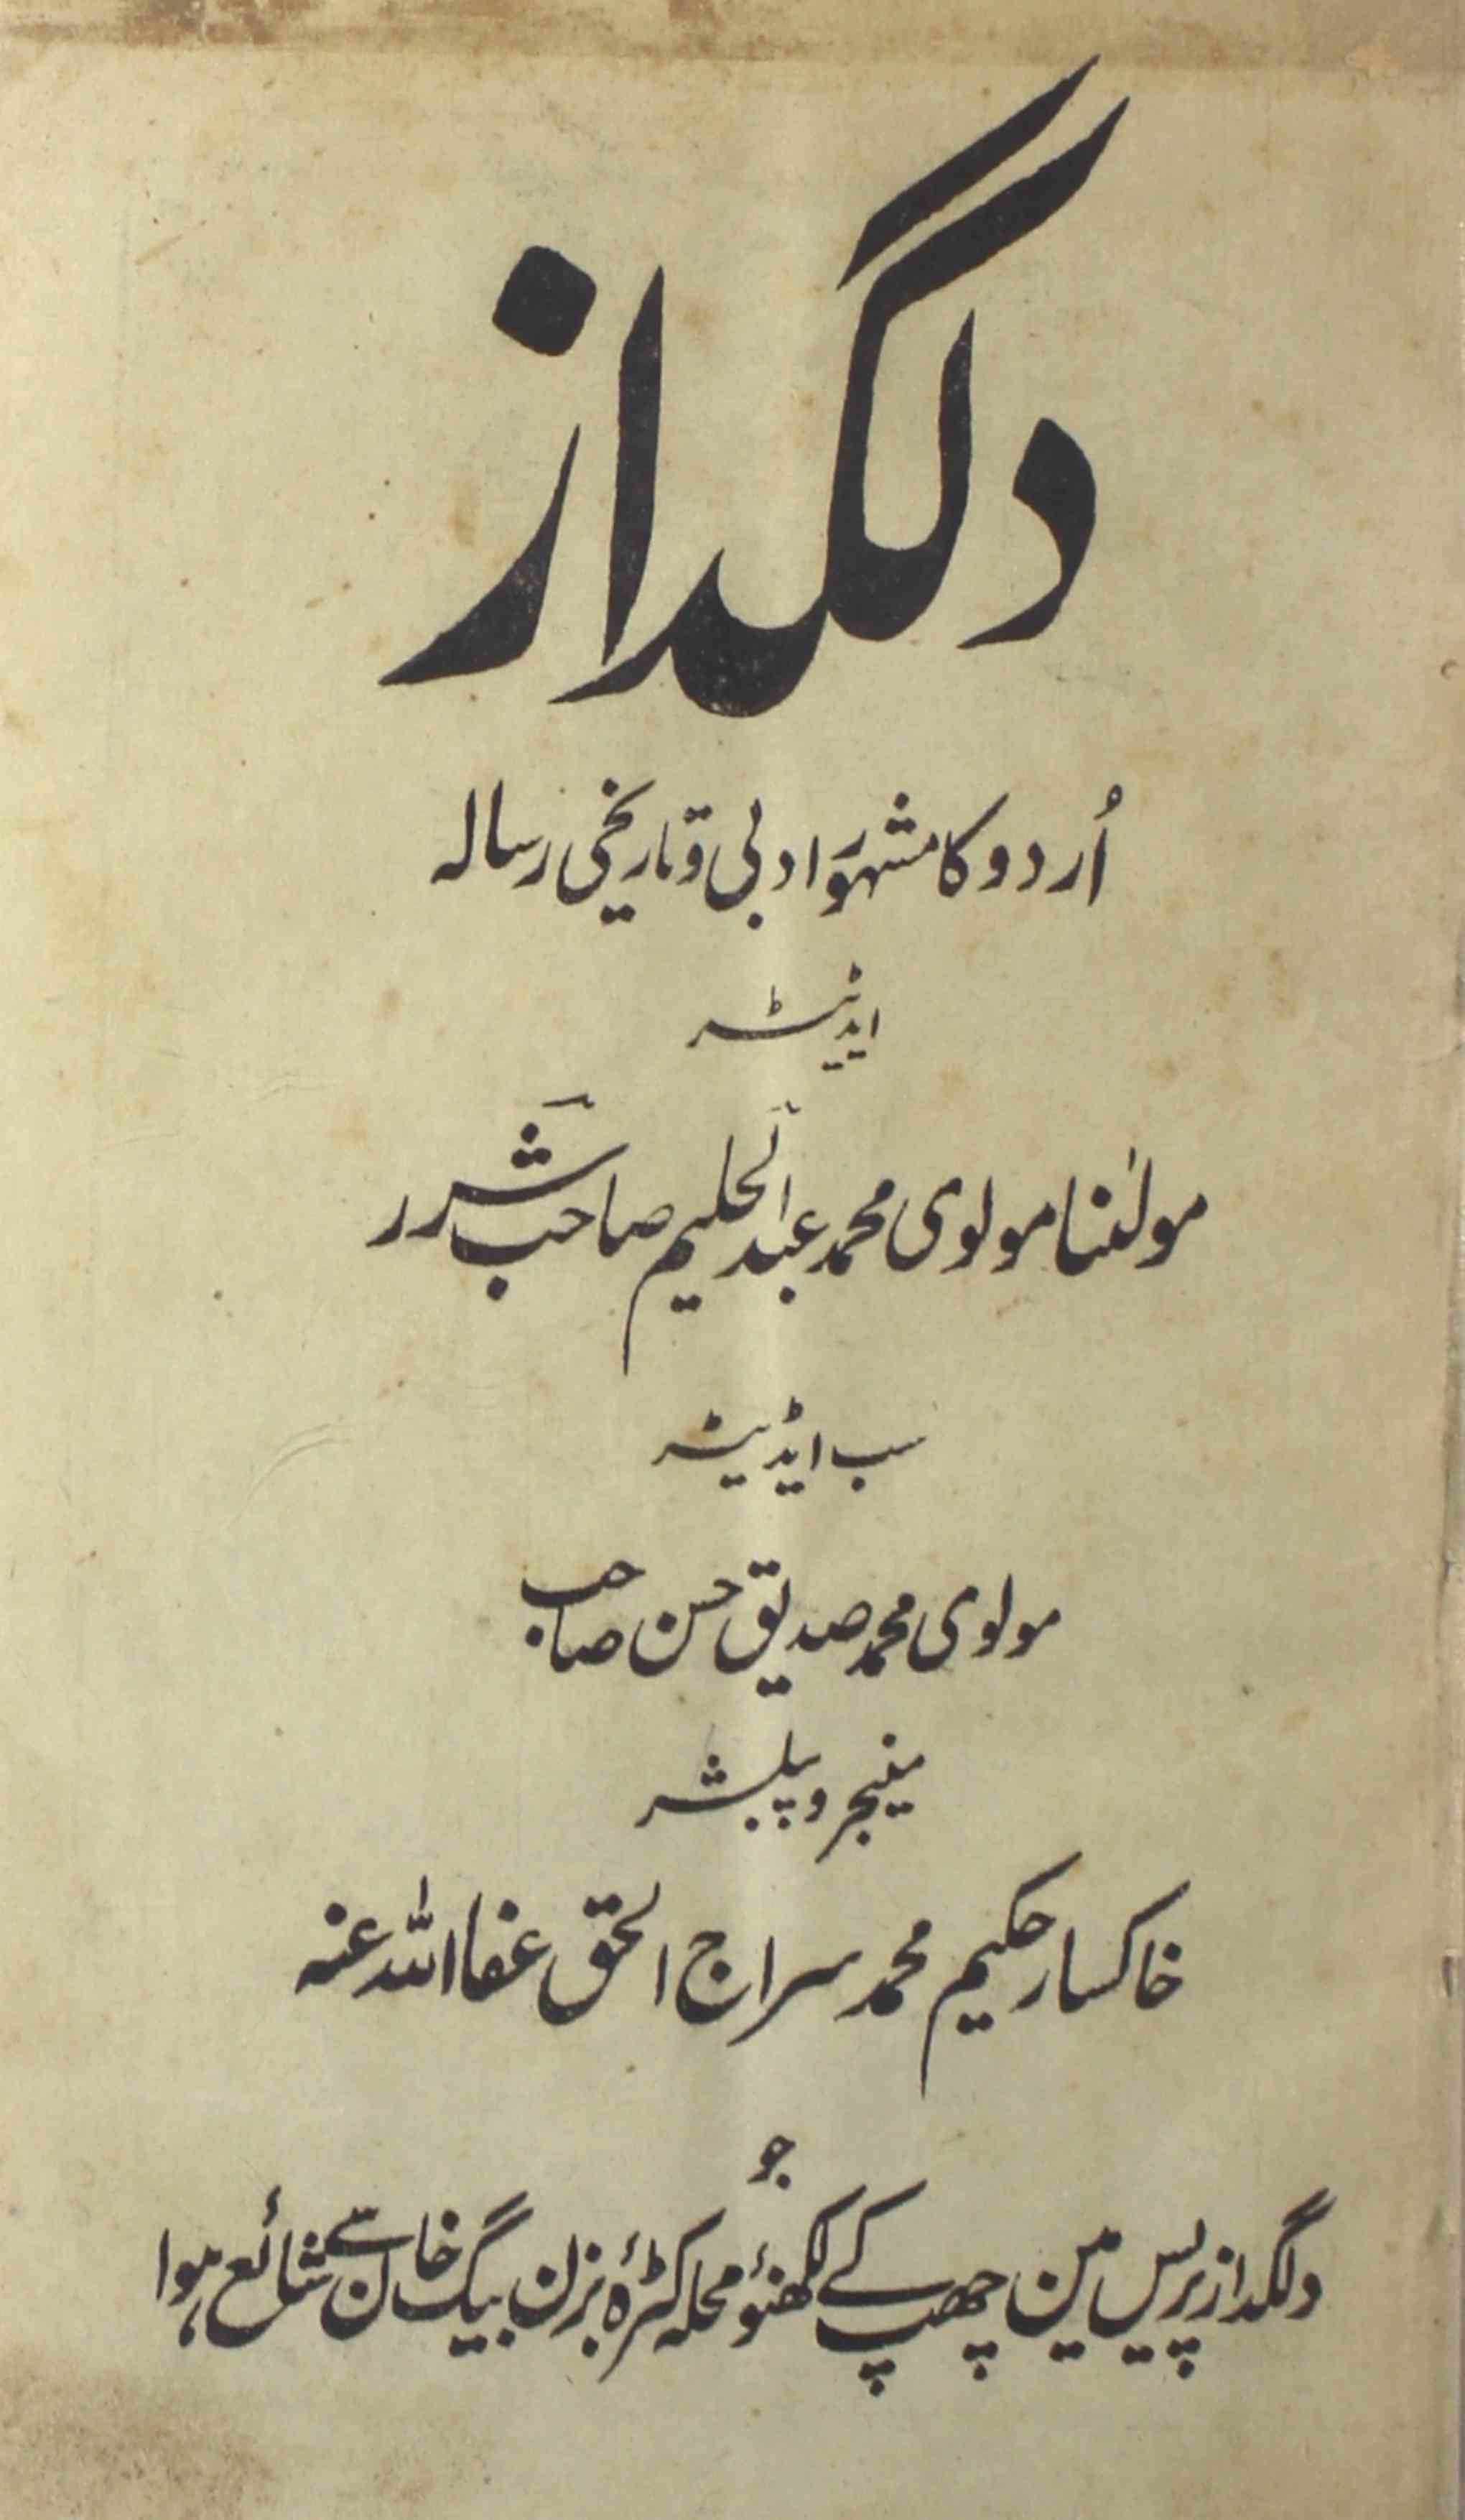 دلگداز
اُردو کا مشہور ادبی و تاریخی رسالہ
ایڈیٹر
مولٰنا مولوی محمد عبدالحلیم صاحب شرر
سب ایڈیٹر
مولوی محمد صدیق حسن صاحب
مینیجر و پبلشر
خاکسار حکیم محمد سراج الحق عفا اللہ عنہ
جو
دلگداز پریس مین چھپ کے لکھنؤ محلہ کٹرۂ بزن بیگ خان سے شائع ہوا